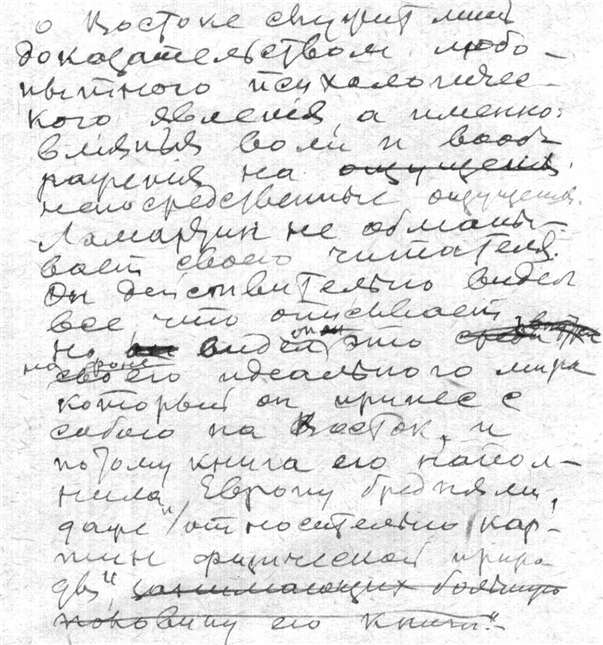 о Востоке служит лишь
доказательством любо-
пытного психологичес-
кого явления, а именно:
влияния воли и вооб-
ражения на ощущения
непосредственные ощущения.
Ламартин не обманы-
вает своего читателя.
Он действительно видел
все, что описывает
но он видел он это среди
на фоне
своего идеального мира
который он принес с
собою на Восток, и
потому книга его напол-
нила Европу бреднями,
даже "относительно кар-
тин физической приро
ды", занимающих большую
половину его книги".